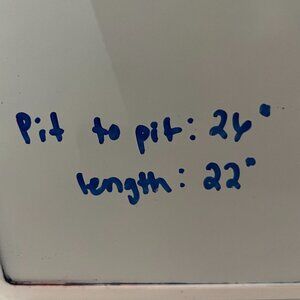 Pit to pit: 24"
length: 22"